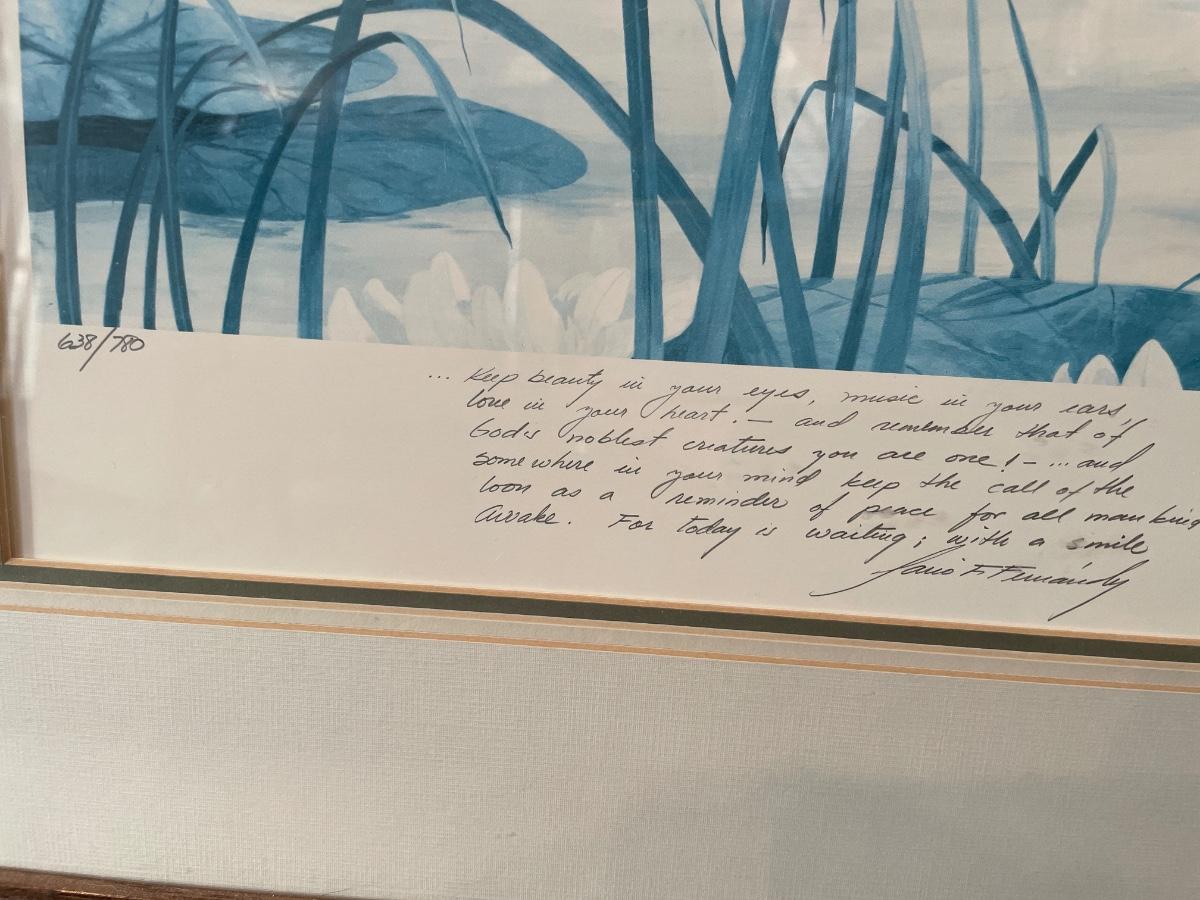 638/780
... Keep beauty in your eyes, music in your ears,
love in your heart. – and remember that of
God's noblest creatures you are one! – ... and
somewhere in your mind keep the call of the
loon as a reminder of peace for all mankind
Awake. For today is waiting; with a smile
Mario F. Fernández